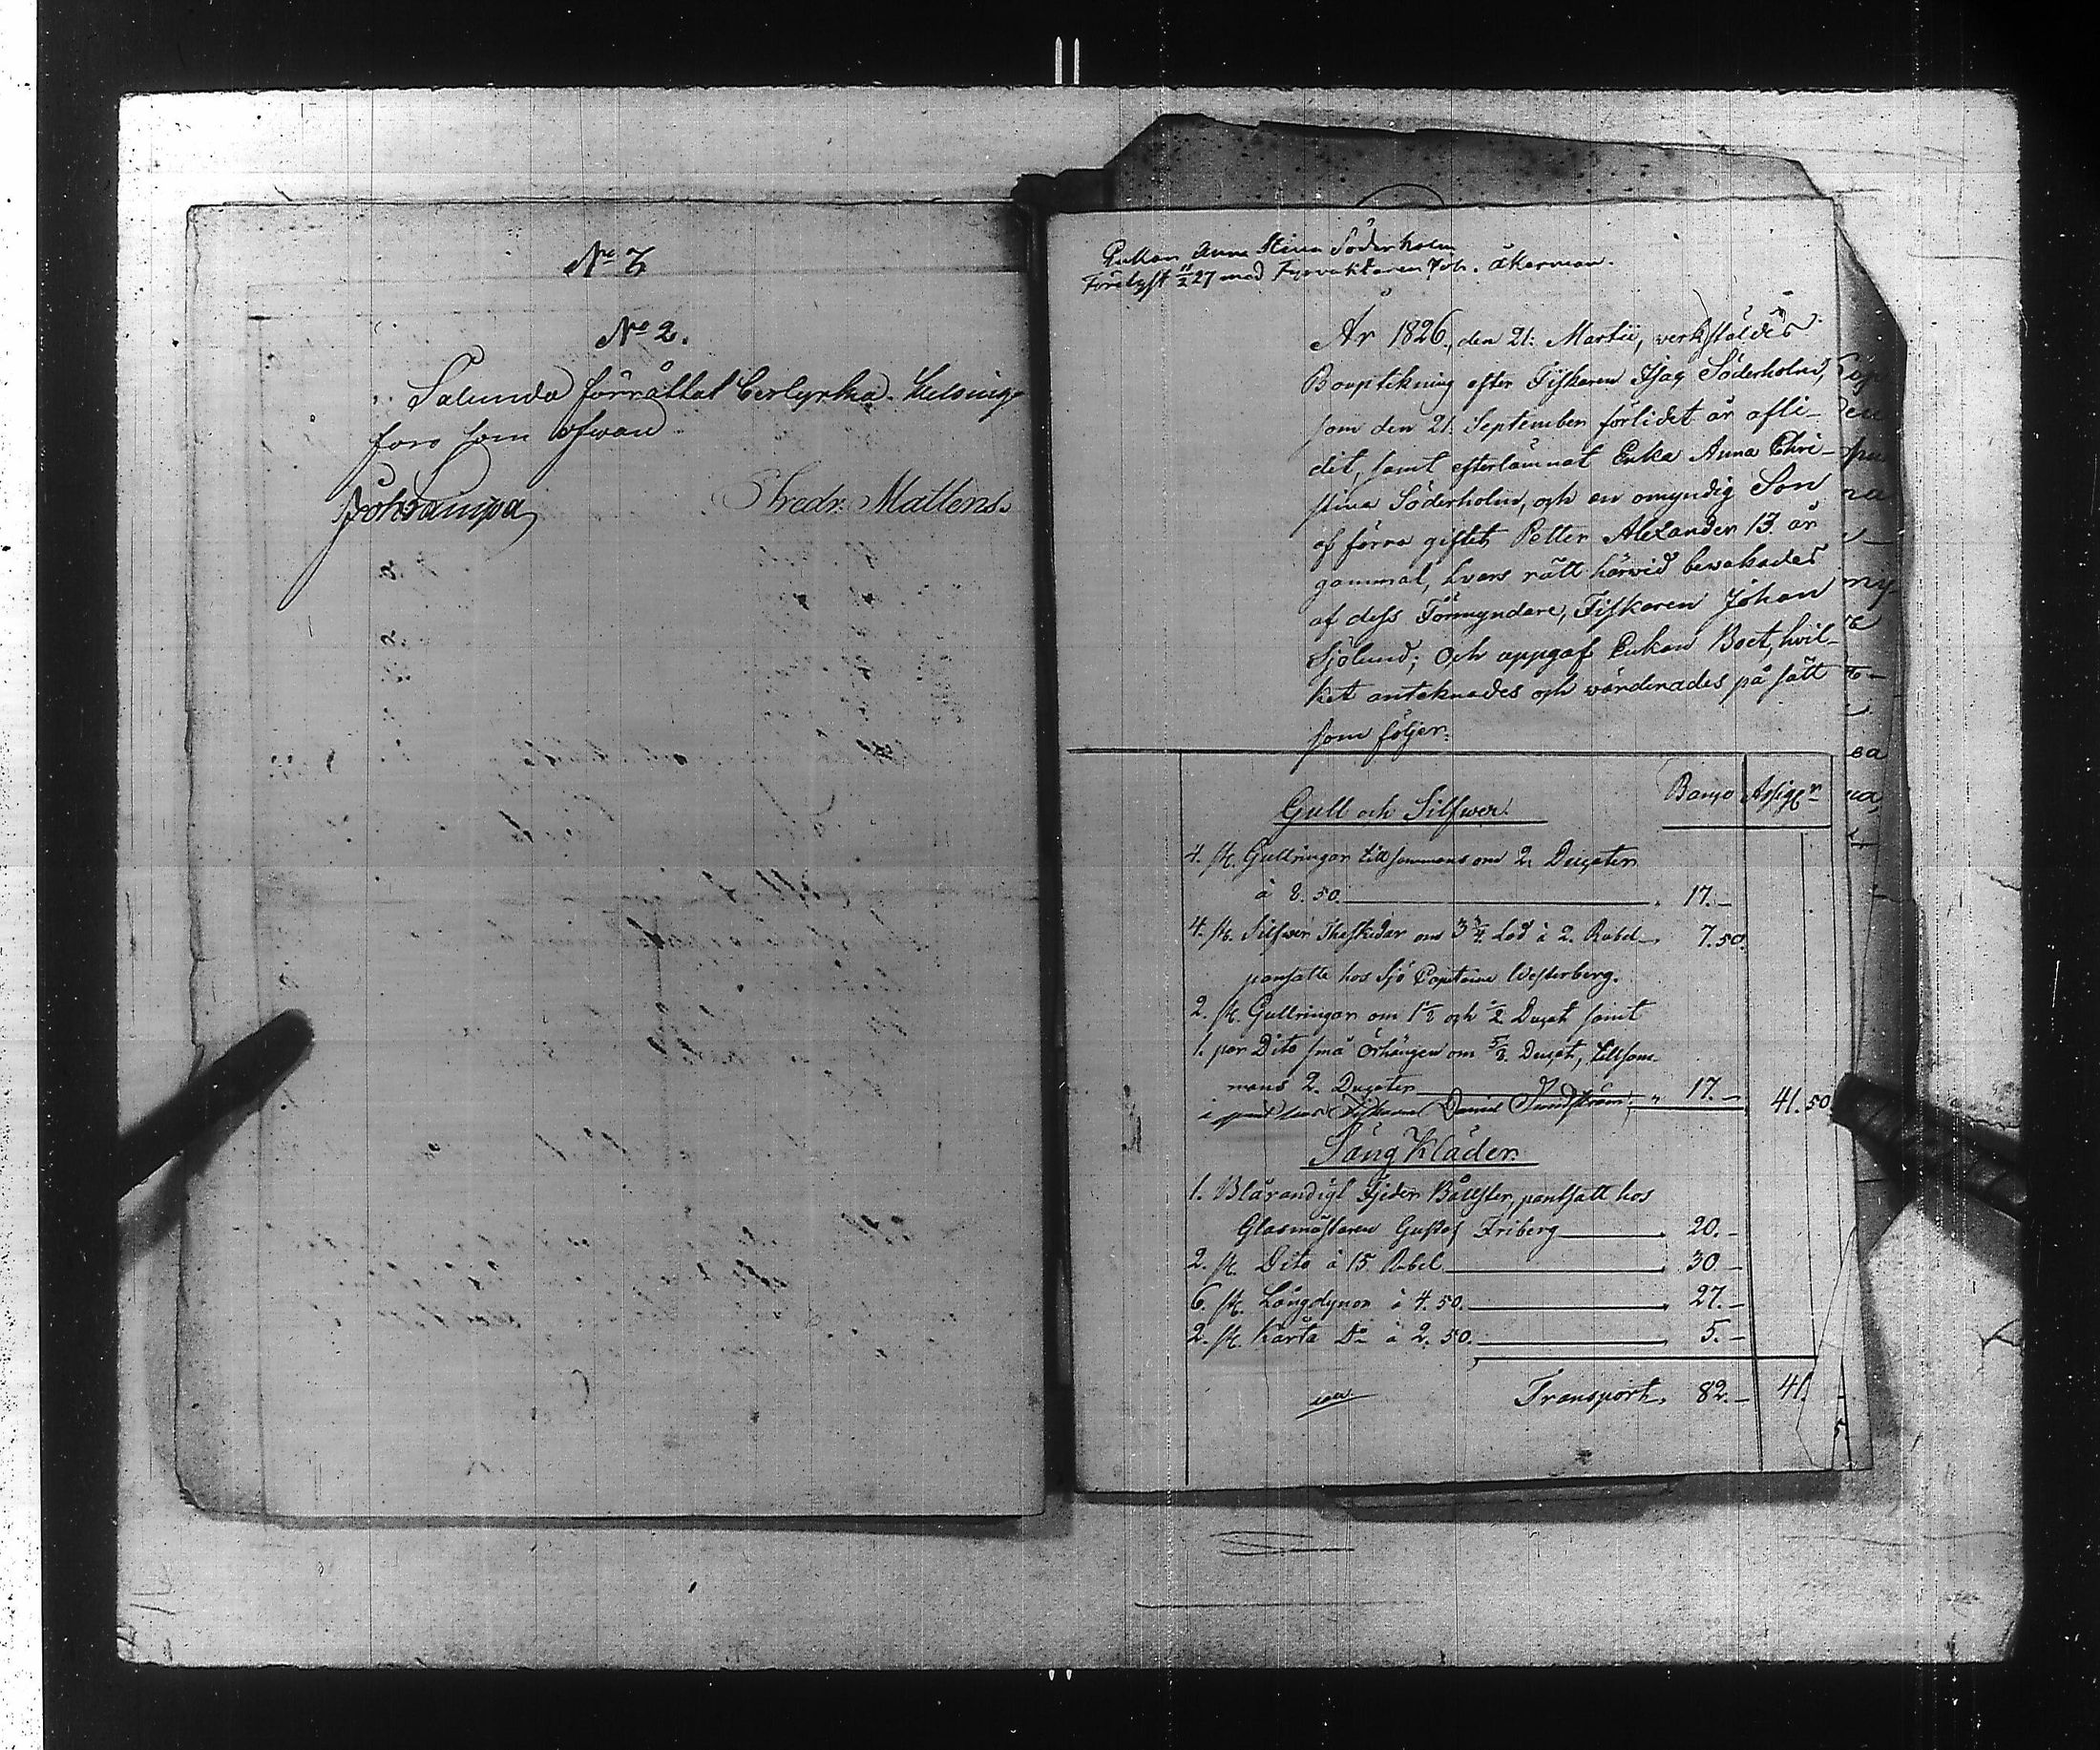 No 7
No 2.
Salunda förrättat betyrka. Helsing-
fors som ofwan
Joh: Lampa
Fredr: Mattens.
Enkan Anna Stina Söderholm
Förelyst 11/2 27 med Fyrvaktaren Joh. Åkerman.
År 1826, den 21: Martii, verkstäldes
Bouptekning efter Fiskaren Isac Söderholm,
som den 21. September förlidet år afli-
dit, samt efterlämnat Enka Anna Chri-
stina Söderholm, och en omyndig Son
af förra giftet, Petter Alexander 13. år
gammal, hvars rätt härwid bewakades
af dess Förmyndare, Fiskaren Johan
Sjölund; Och uppgaf Enkan Boet, hvil-
ket anteknades och wärderades på sätt
som följer:
Banco Assign
Gull och Silfwer.
4. st. Gullringar tillsammans om 2. Ducater
à 8. 50. 17. –
4. st. Silfwer Theskedar om 3 3/4 Lod à 2. Rubel 7. 50.
pansatte hos Sjö Capitaine Westerberg.
2. st. Gullringar om 1 1/8 och 1/2 Ducat samt
1. par Dito små Örhängen om 3/8 Ducat, tillsam-
mans 2. Ducater 17. –
i pant hos Fiskaren Daniel Sundström 41. 50
Säng Kläder
1. Blårandigt Fjeder Bålster, pantsatt hos
Glasmästaren Gustaf Friberg 20. –
2. st. Dito à 15 Rubel 30 –
6. st. Långdynor à 4. 50. 27. –
2. st. Korta Do à 2. 50. 5. –
Transport. 82. – 41.